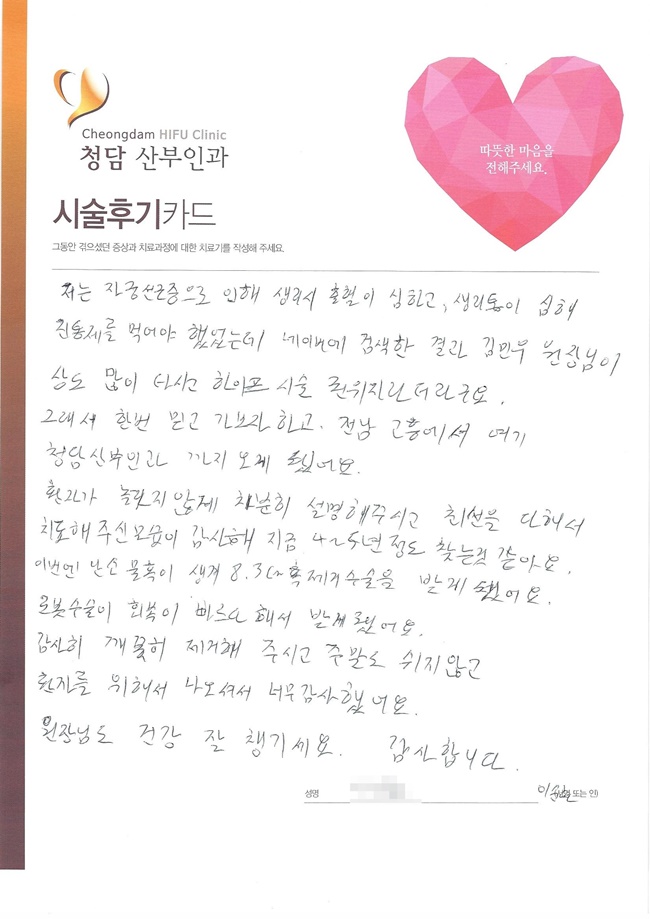 Cheongdam HIFU Clinic
청담 산부인과
따뜻한 마음을
전해주세요.
시술후기카드
그동안 겪으셨던 증상과 치료과정에 대한 치료기를 작성해 주세요.
저는 자궁선근증으로 인해 생리시 출혈이 심하고, 생리통이 심해
진통제를 먹어야 했었는데 네이버에 검색한 결과 김민우 원장님이
상도 많이 타시고 하이프 시술 권위자라더라구요.
그래서 한번 믿고 가보자하고. 전남 고흥에서 여기
청담산부인과 까지 오게 됬어요.
환자가 놀랫지않게 차분히 설명해주시고 최선을 다해서
치료해주신모습이 감사해 지금 4~5년정도 찾는것 같아요.
이번엔 난소 물혹이 생겨 8.3cm 혹제거수술을 받게 됬어요.
로봇수술이 회복이 빠르다 해서 받게됬어요.
감사히 깨끗히 제거해 주시고 주말도 쉬지않고
환자를 위해서 나오셔서 너무감사했어요.
원장님도 건강 잘 챙기세요. 감사합니다.
성명 또는 인)